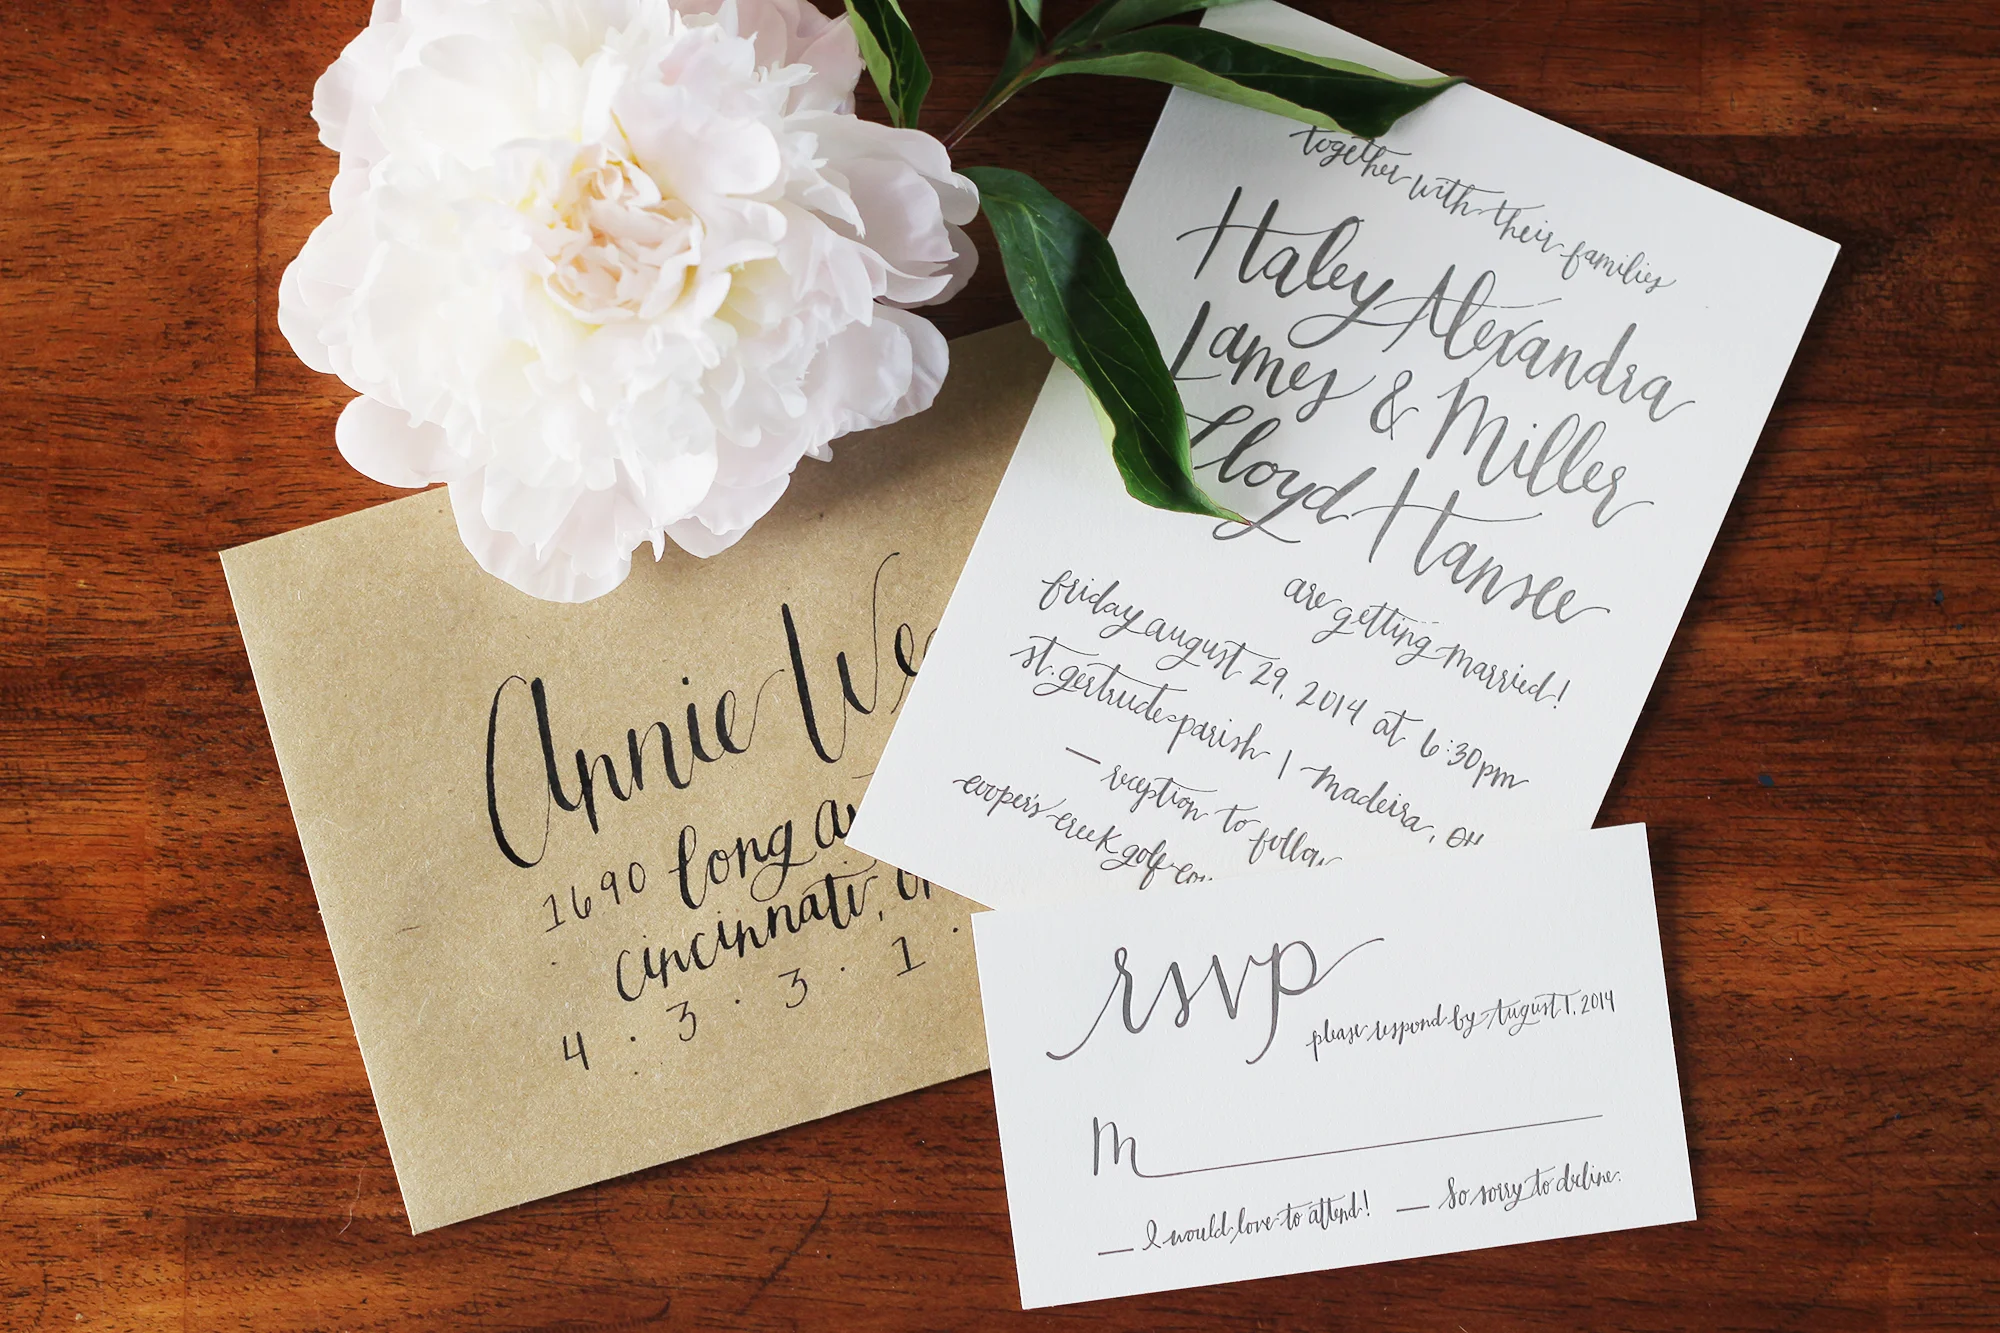 Annie
1690 long
cincinnati,
4 · 3 · 3 · 1 ·
together with their families
Haley Alexandra
Lames & Miller
Lloyd Hansee
are getting married!
friday august 29, 2014 at 6:30pm
st. gertrude parish | madeira, OH
— reception to follow
cooper's creek golf
rsvp
please respond by August 1, 2014
M
I would love to attend! — So sorry to decline.